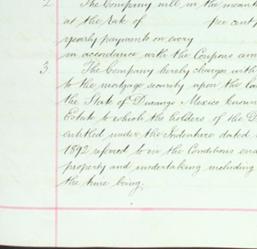 2. The Company will in the mean
at the rate of per cent p
yearly payments on every
in accordance with the Coupons an
3. The Company hereby charge with
to the mortgage security upon the la
the State of Durango Mexico known
Estate to which the holders of the D
entitled under the Indenture dated
1892 referred to in the Conditions end
property and undertaking including
the time being.